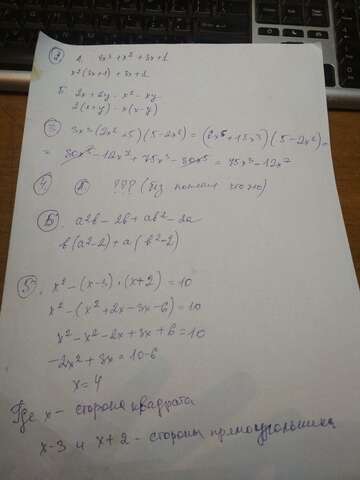 2 А. 3x³ + x² + 3x + 1
x²(3x+1) + 3x+1
Б. 2x + 2y - x² - xy
2(x+y) - x(x-y)
3 3x³(2x²+5)(5-2x²) = (6x⁵+15x³)(5-2x²) =
= 30x⁵ - 12x⁷ + 75x³ - 30x⁵ = 75x³ - 12x⁷
4 А ??? (без
Б. a²b - 2b + ab² - 2a
b(a²-2) + a(b²-2)
5. x² - (x-3)·(x+2) = 10
x² - (x² + 2x - 3x - 6) = 10
x² - x² - 2x + 3x + 6 = 10
-2x² + 3x = 10-6
x = 4
Где x - сторона квадрата
x-3 и x+2 - стороны прямоугольника